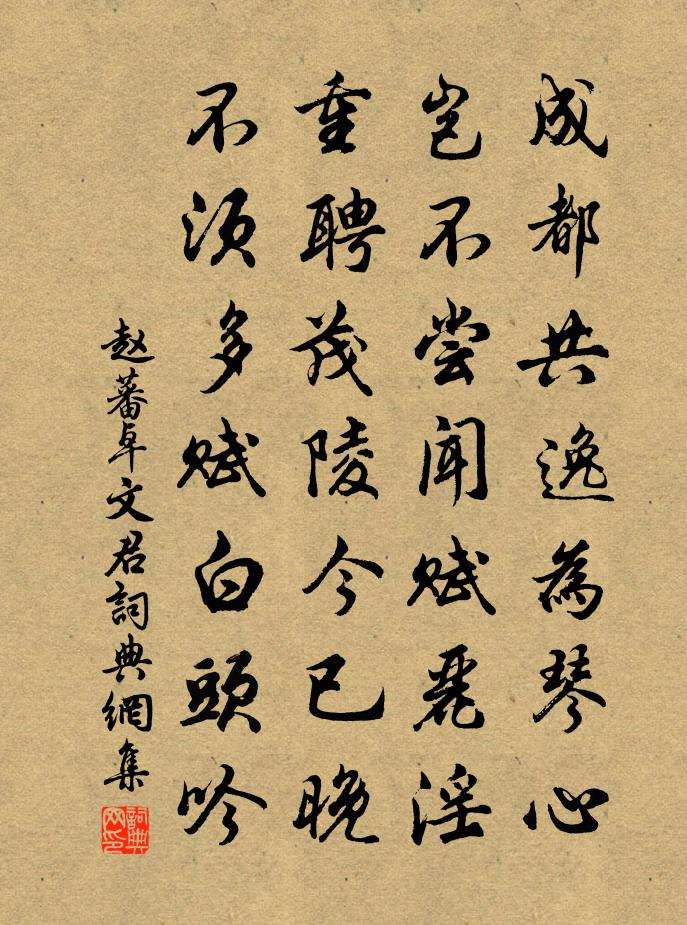 成都共逸為琴心
岂不尝闻赋麗淫
重聘茂陵今已晚
不须多赋白頭吟
赵蕃卓文君詞典網集
詞典网印